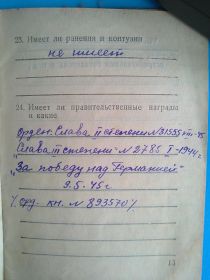 23. Имеет ли ранения и контузии
не имеет
24. Имеет ли правительственные награды
и какие
Орден: Слава II степени № 31555 VIII-45
"Слава III степени" № 2785 I-1944 г.
"За победу над Германией"
9.5.45 г.
Орд. кн. № 893570
13